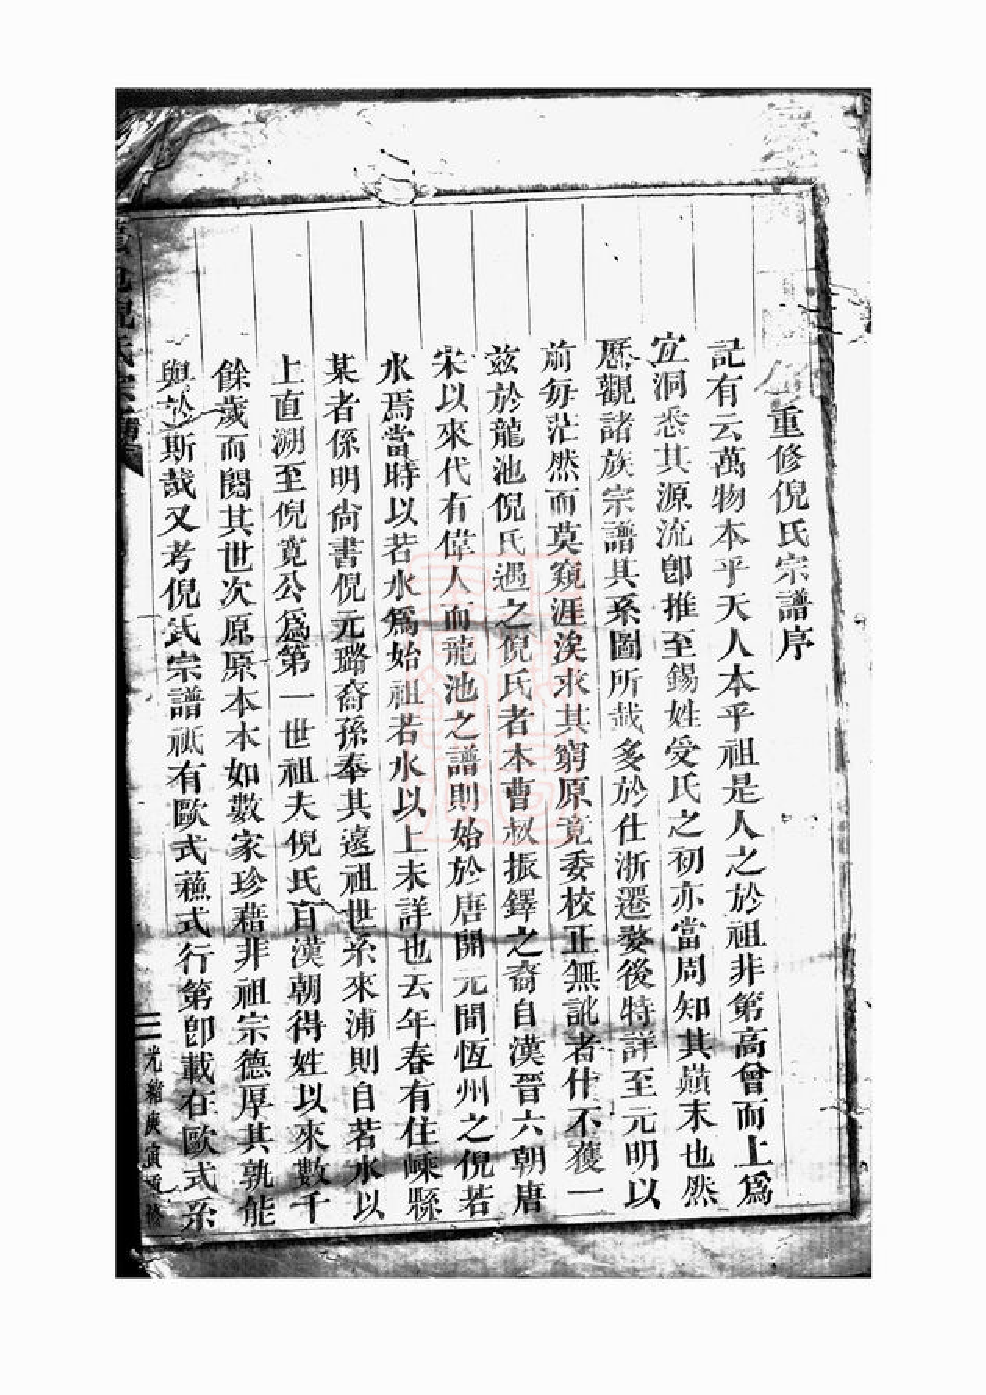 重修倪氏宗譜序
記有云萬物本乎天人本乎祖是人之於祖非第高曾而上爲
宜洞悉其源流卽推至錫姓受氏之初亦當周知其巔末也然
歷觀諸族宗譜其系圖所載多於仕浙遷婺後特詳至元明以
前每茫然而莫窺涯涘求其窮原竟委校正無訛者什不獲一
兹於龍池倪氏遇之倪氏者本曹叔振鐸之裔自漢晉六朝唐
宋以來代有偉人而龍池之譜則始於唐開元間恆州之倪若
水焉當時以若水爲始祖若水以上未詳也云年春有住嵊縣
某者係明尚書倪元璐裔孫奉其遠祖世系來浦則自若水以
上直溯至倪寬公爲第一世祖夫倪氏自漢朝得姓以來數千
餘歲而閱其世次原原本本如數家珍藉非祖宗德厚其孰能
與於斯哉又考倪氏宗譜祗有歐式蘇式行第卽載在歐式系
倪氏宗譜
光緒庚寅重修